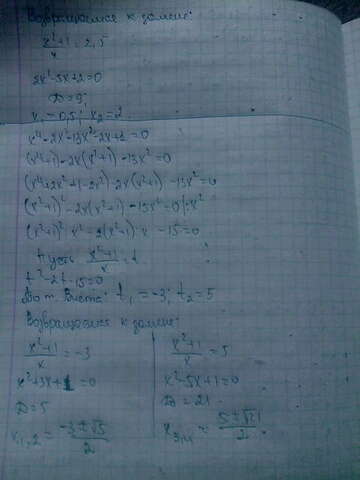 Возвращаемся к замене:
x²+1/x = 2,5
2x²-5x+2=0
D=9;
x₁=0,5; x₂=2
x⁴-2x³-13x²-2x+1=0
(x⁴+1)-2x(x²+1)-13x²=0
(x⁴+2x²+1-2x²)-2x(x²+1)-13x²=0
(x²+1)²-2x(x²+1)-15x²=0 |:x²
(x²+1)²: x²-2(x²+1): x -15=0
Пусть x²+1/x = t
t²-2t-15=0
По т. Виета: t₁=-3; t₂=5
Возвращаемся к замене:
x²+1/x = -3
x²+3x+1=0
D=5
x₁,₂ = -3±√5/2
x²+1/x = 5
x²-5x+1=0
D=21
x₃,₄ = 5±√21/2